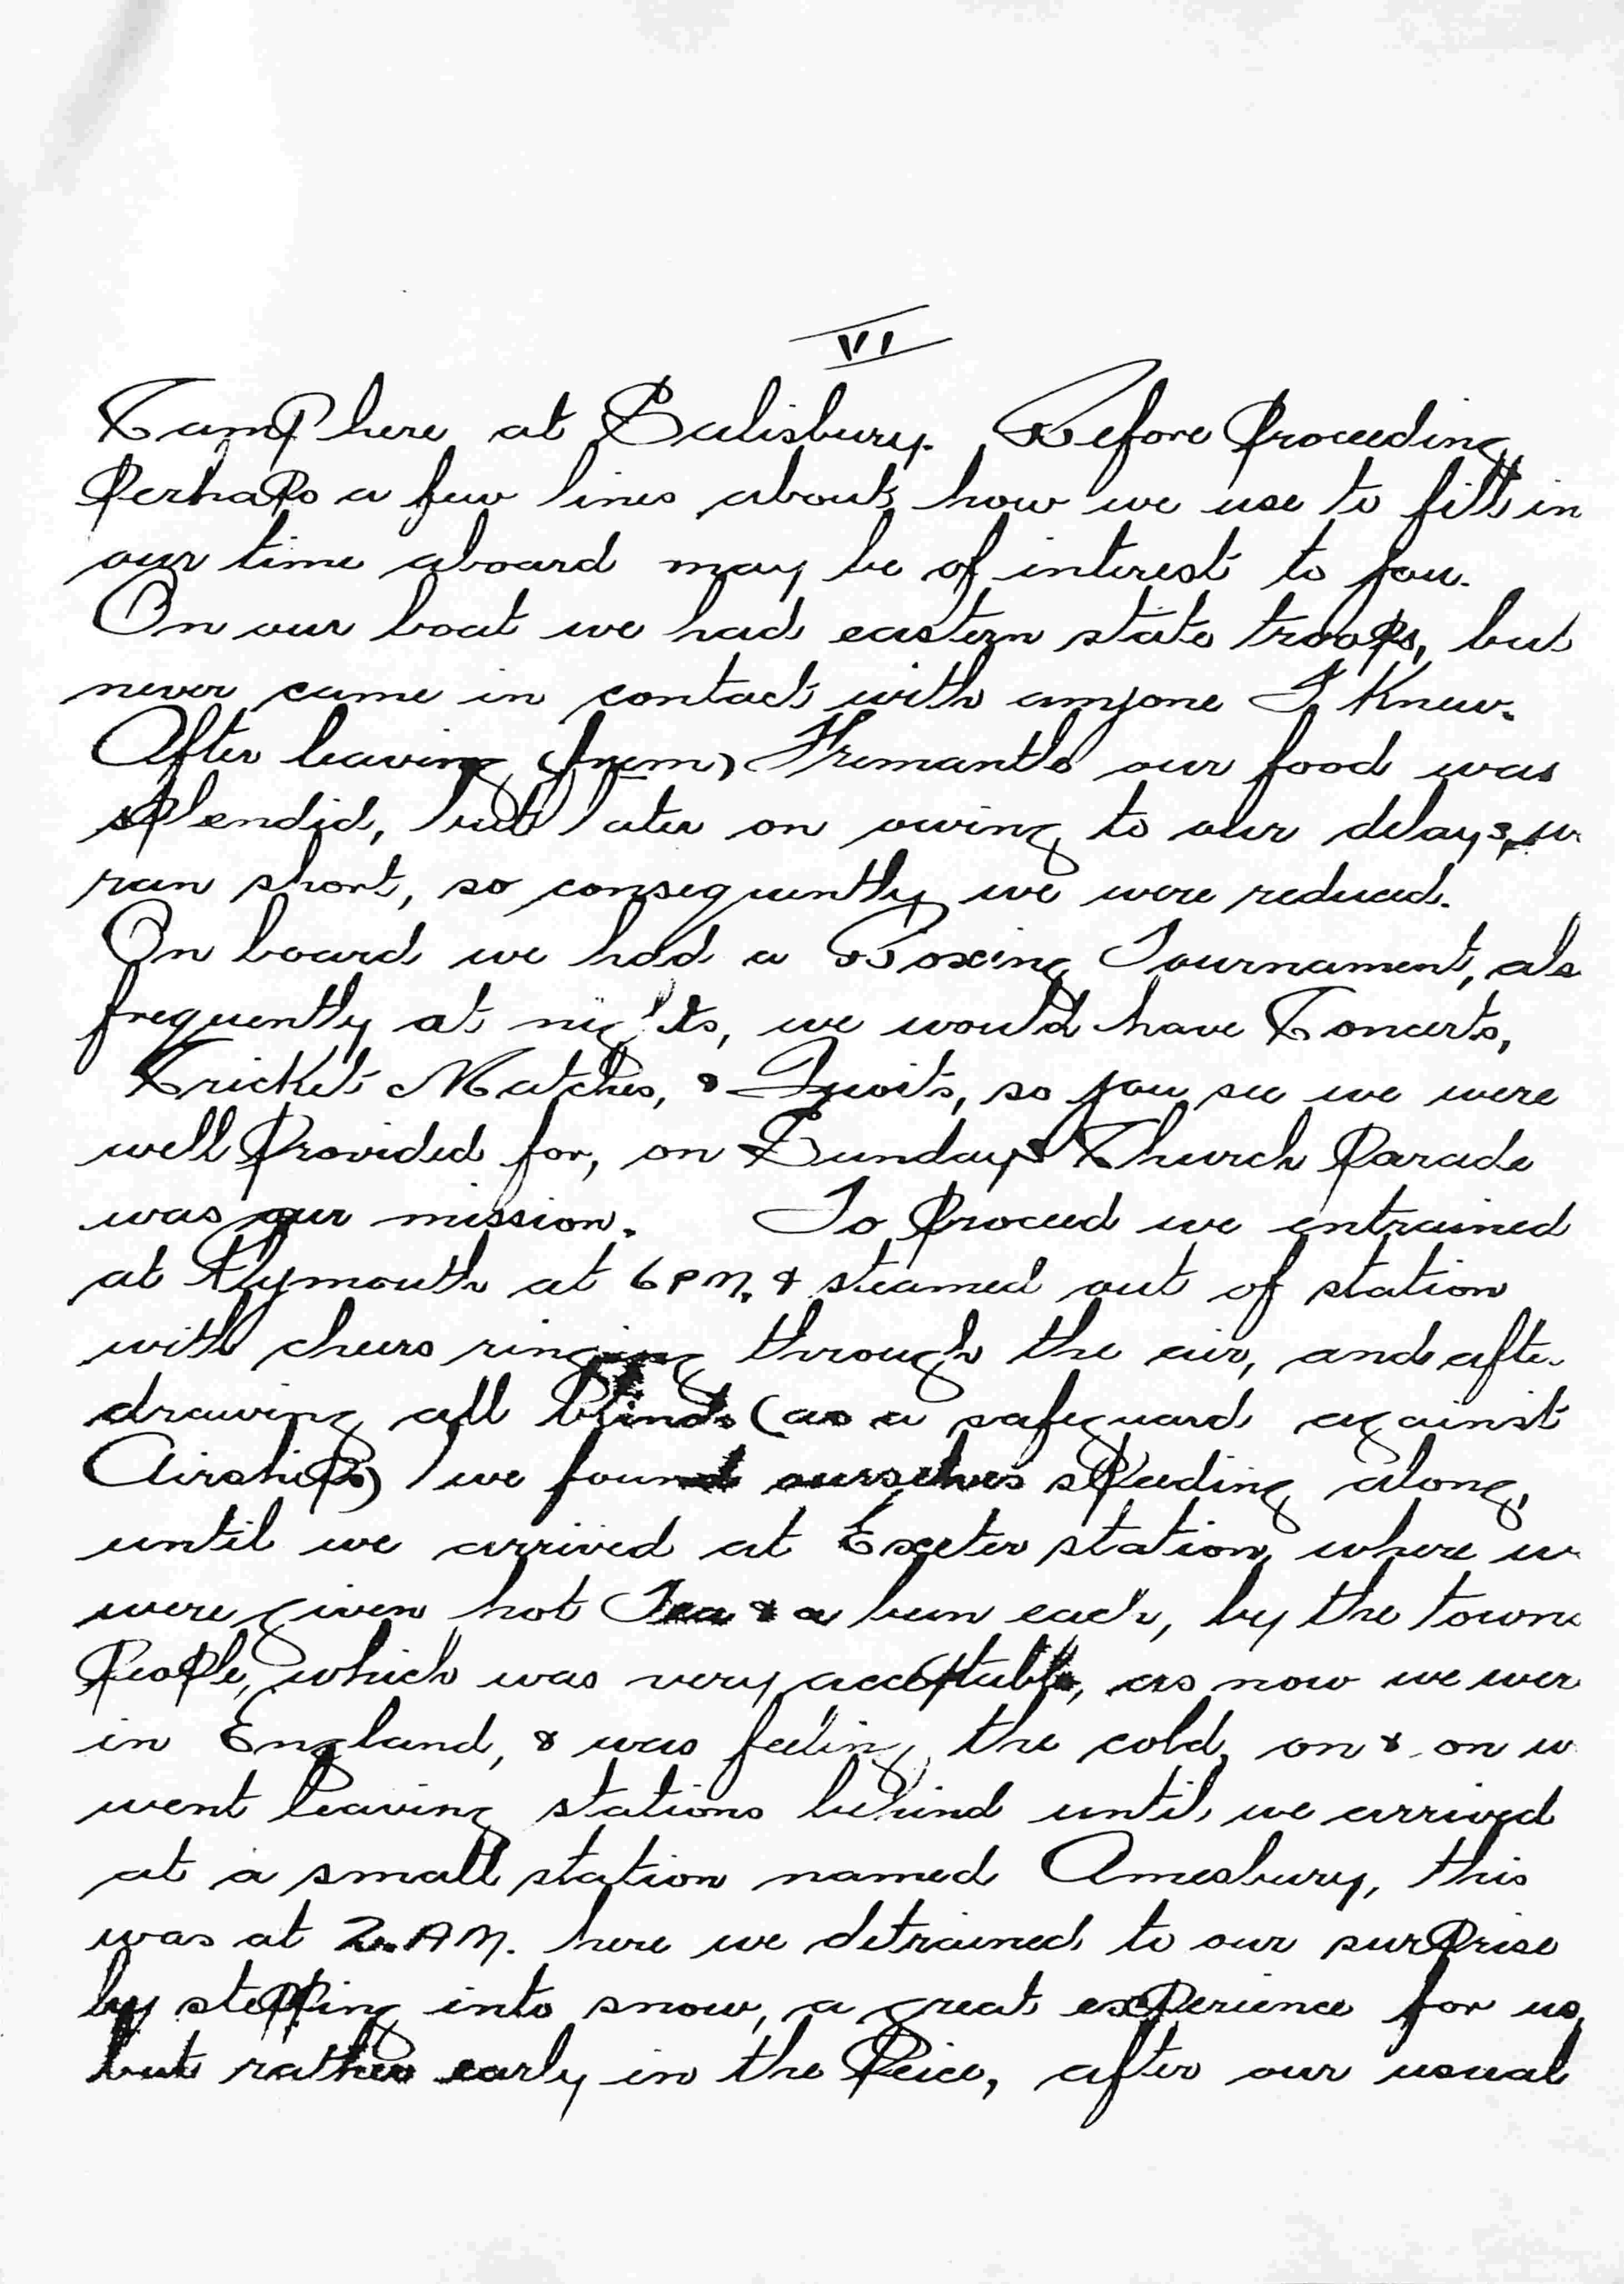 VI
Camp here at Salisbury. Before Proceeding,
Perhaps a few lines about how we use to fill in
our time aboard may be of interest to you.
On our boat we had eastern state troops, but
never came in contact with anyone I knew.
After leaving (from) Fremantle our food was
splendid, but later on owing to our delays, w
ran short, so consequently we were reduced.
On board we had a Boxing Tournament, als
frequently at nights, we would have Concerts,
Cricket Matches, & Quoits, so you see we were
well Provided for, on Sundays Church Parade
was our mission. To Proceed we entrained
at Plymouth at 6 PM. & steamed out of station
with cheers ringing through the air, and after
drawing all blinds (as a safeguard against
Airships) we found ourselves speeding along,
until we arrived at Exeter station, where w
were given hot Tea & a bun each, by the towns
People, which was very acceptable, as now we wer
in England, & was feeling the cold, on & on w
went leaving stations behind until we arrived
at a small station named Amesbury, this
was at 2. AM. here we detrained to our surprise
by stepping into snow, a great experience for us,
but rather early in the Peice, after our usual